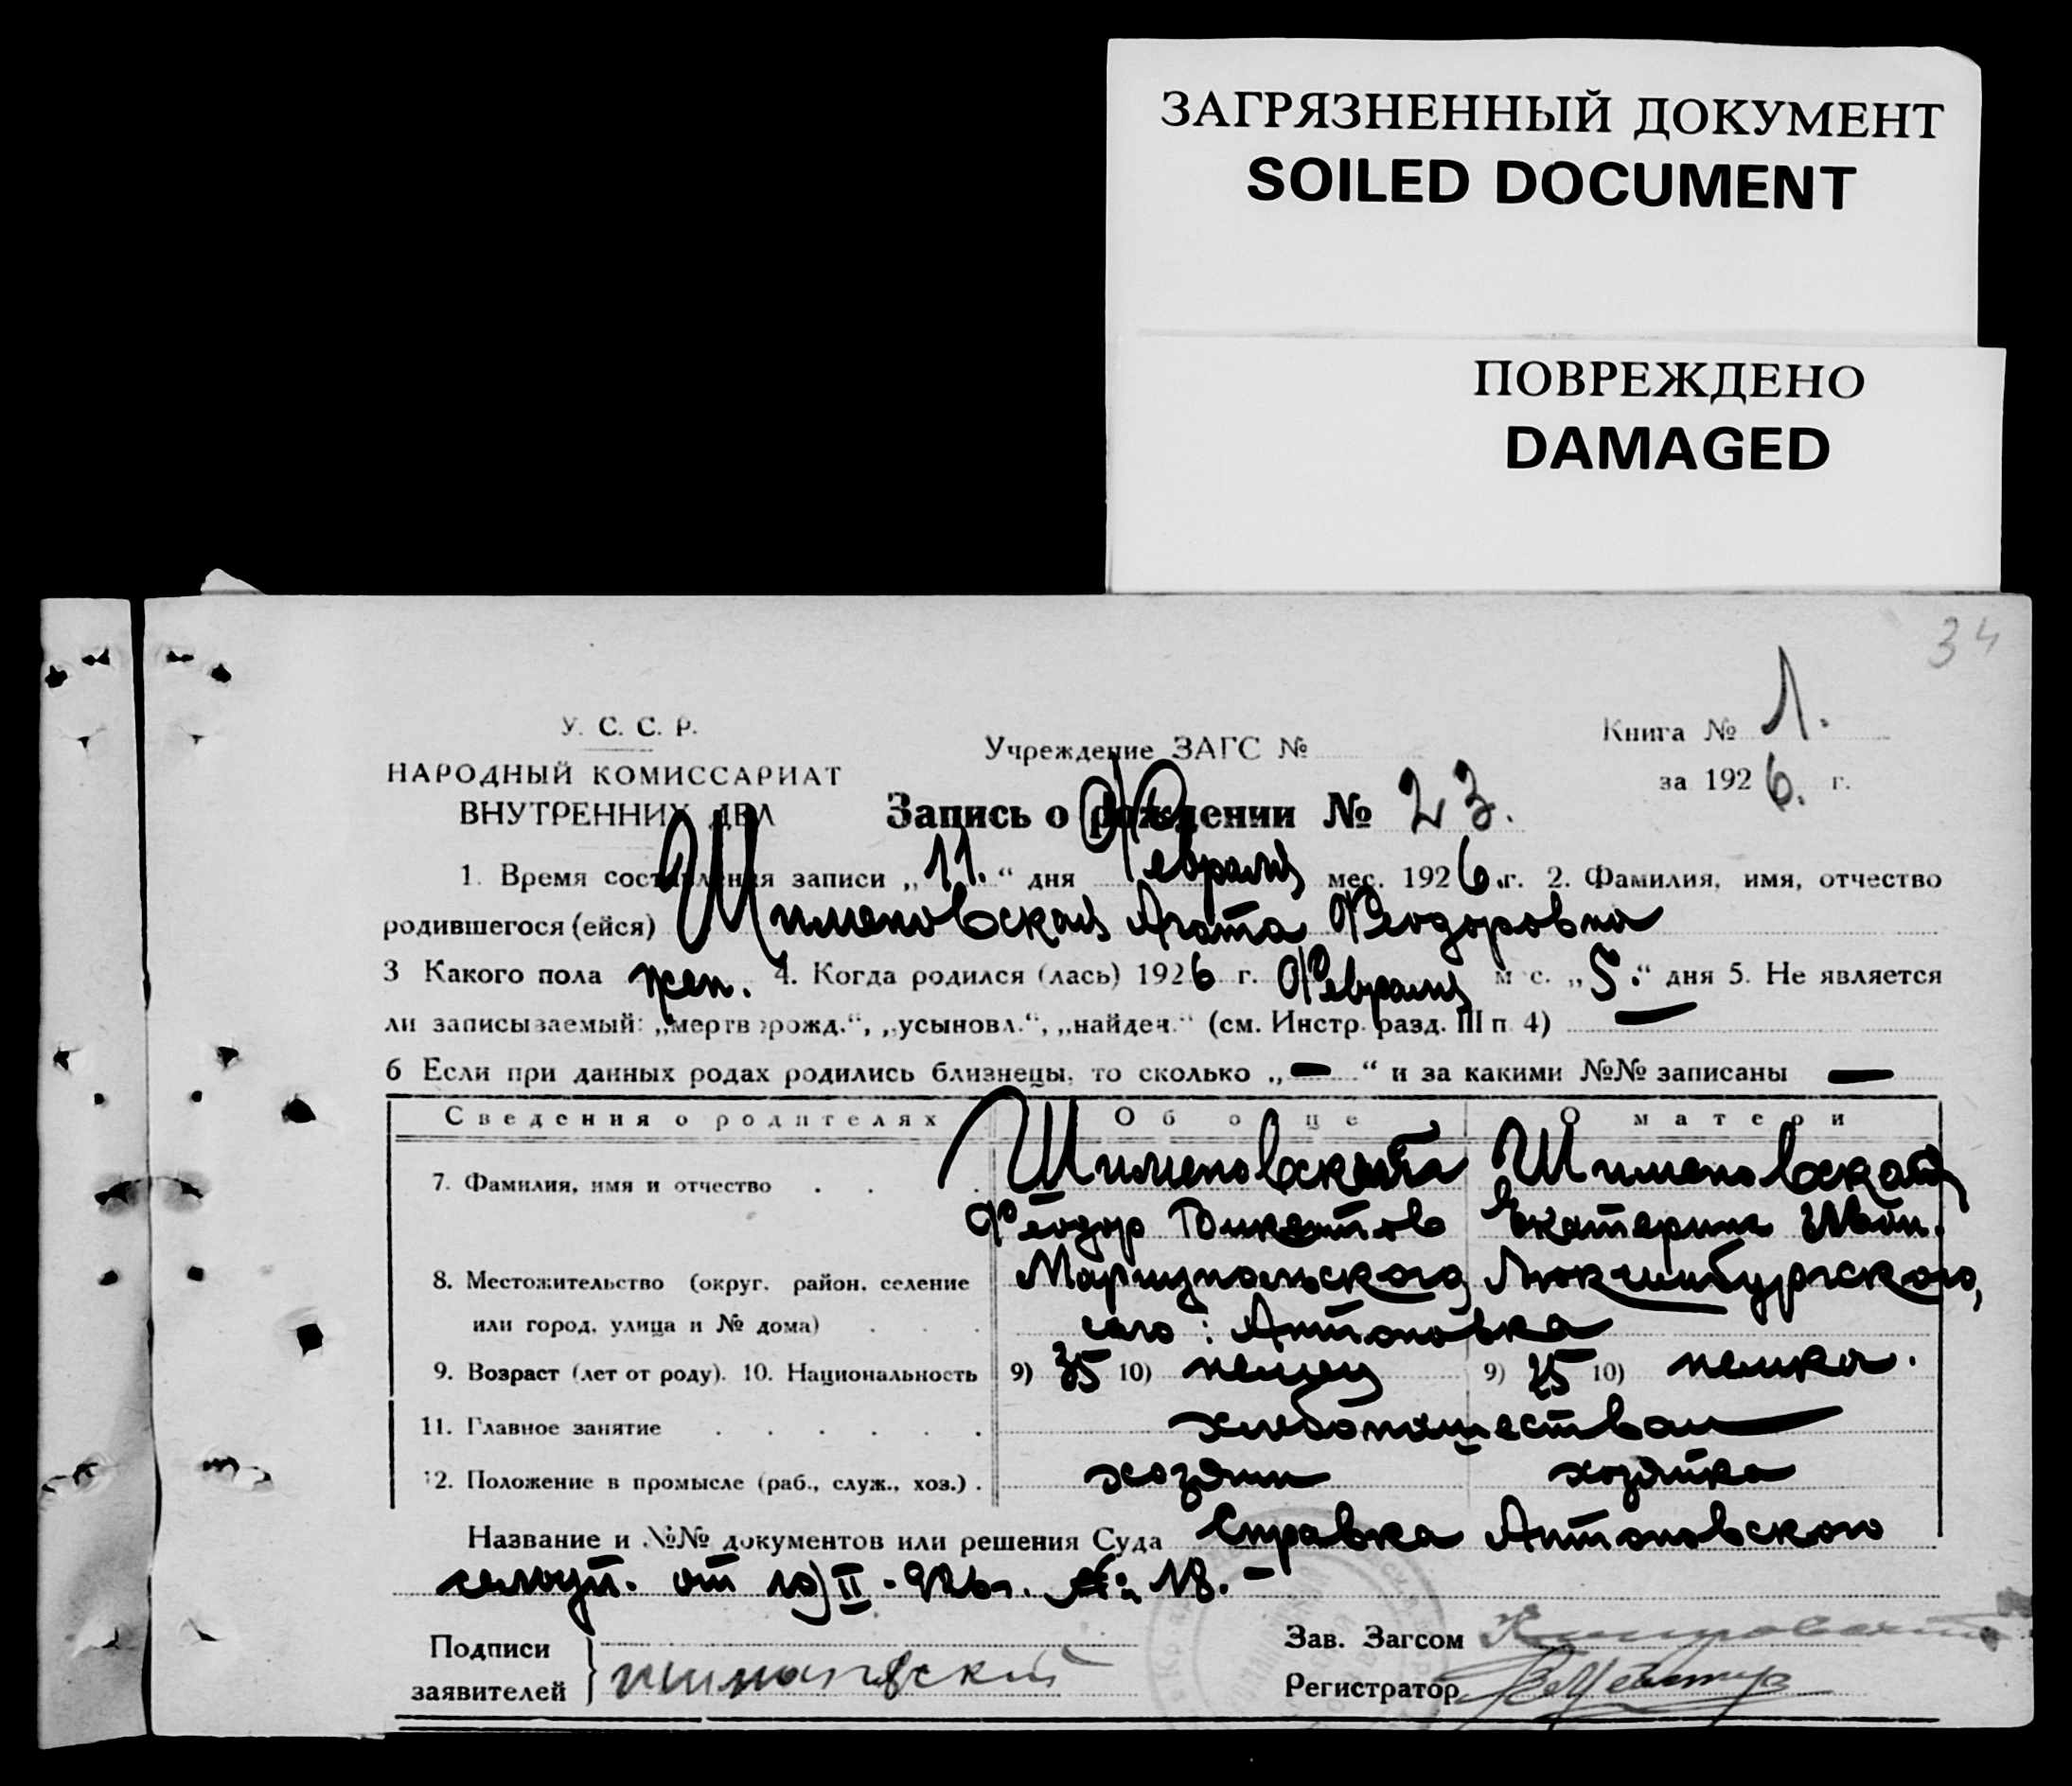 ЗАГРЯЗНЕННЫЙ ДОКУМЕНТ
SOILED DOCUMENT
ПОВРЕЖДЕНО
DAMAGED
34
У. С. С. Р.
НАРОДНЫЙ КОМИССАРИАТ
ВНУТРЕННИХ ДЕЛ
Учреждение ЗАГС №
Книга № 1.
за 1926. г.
Запись о рождении № 23.
1. Время составления записи „11.“ дня Февраля мес. 1926 г. 2. Фамилия, имя, отчество
родившегося (ейся) Шимановская Агата Феодоровна
3 Какого пола жен. 4. Когда родился (лась) 1926 г. Февраля мес. „5.“ дня 5. Не является
ли записываемый: „мертворожд.“, „усыновл.“, „найден.“ (см. Инстр. разд. III п 4) —
6 Если при данных родах родились близнецы, то сколько „—“ и за какими №№ записаны —
Сведения о родителях Об отце О матери
7. Фамилия, имя и отчество . . . Шимановский Шимановская
Феодор Викентьев Екатерина Иван.
8. Местожительство (округ, район, селение Мариупольского Люксембургского,
или город, улица и № дома) . . . село: Антоновка
9. Возраст (лет от роду). 10. Национальность 9) 35 10) немец 9) 25 10) немка.
11. Главное занятие . . . . . . хлебопашеством
12. Положение в промысле (раб., служ., хоз.) . хозяин хозяйка
Название и №№ документов или решения Суда Справка Антоновского
от 10/II-926г. №: 18. –
Подписи
заявителей
Шимановский
Зав. Загсом
Регистратор